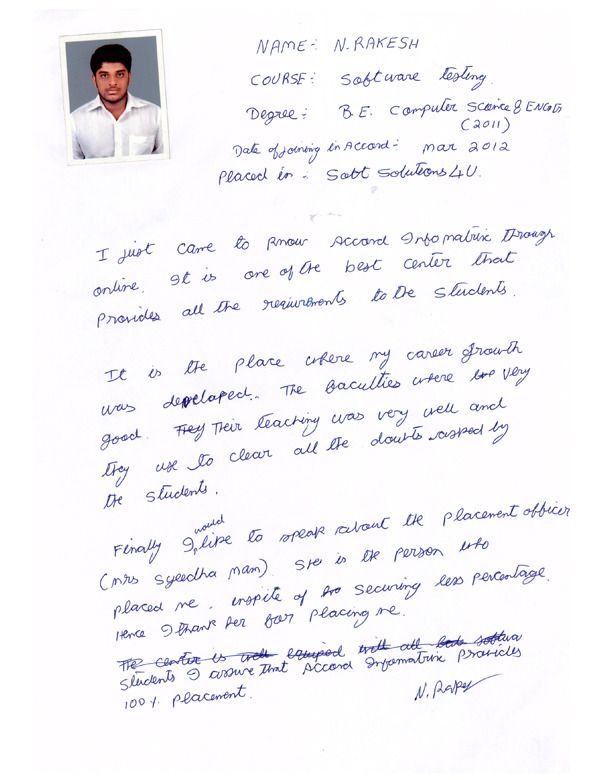 NAME:- N.RAKESH
COURSE:- Software testing.
Degree:- B.E. Computer Science & ENGG
(2011)
Date of joining in Accord:- Mar 2012
Placed in:- Soft Solutions4U.
I just came to know Accord Infomatrix through
online. It is one of the best center that
Provides all the requirements to the students.
It is the place where my career growth
was developed. The faculties where very
good. They Their teaching was very well and
they use to clear all the doubts asked by
the students.
Finally I would like to speak about the placement officer
(mrs Syeedha Mam) She is the person who
placed me. inspite of securing less percentage.
Hence I thank her for placing me.
The center is well equiped with all
Students I assure that Accord Infomatrix Provides
100% Placement.
N. Rakesh